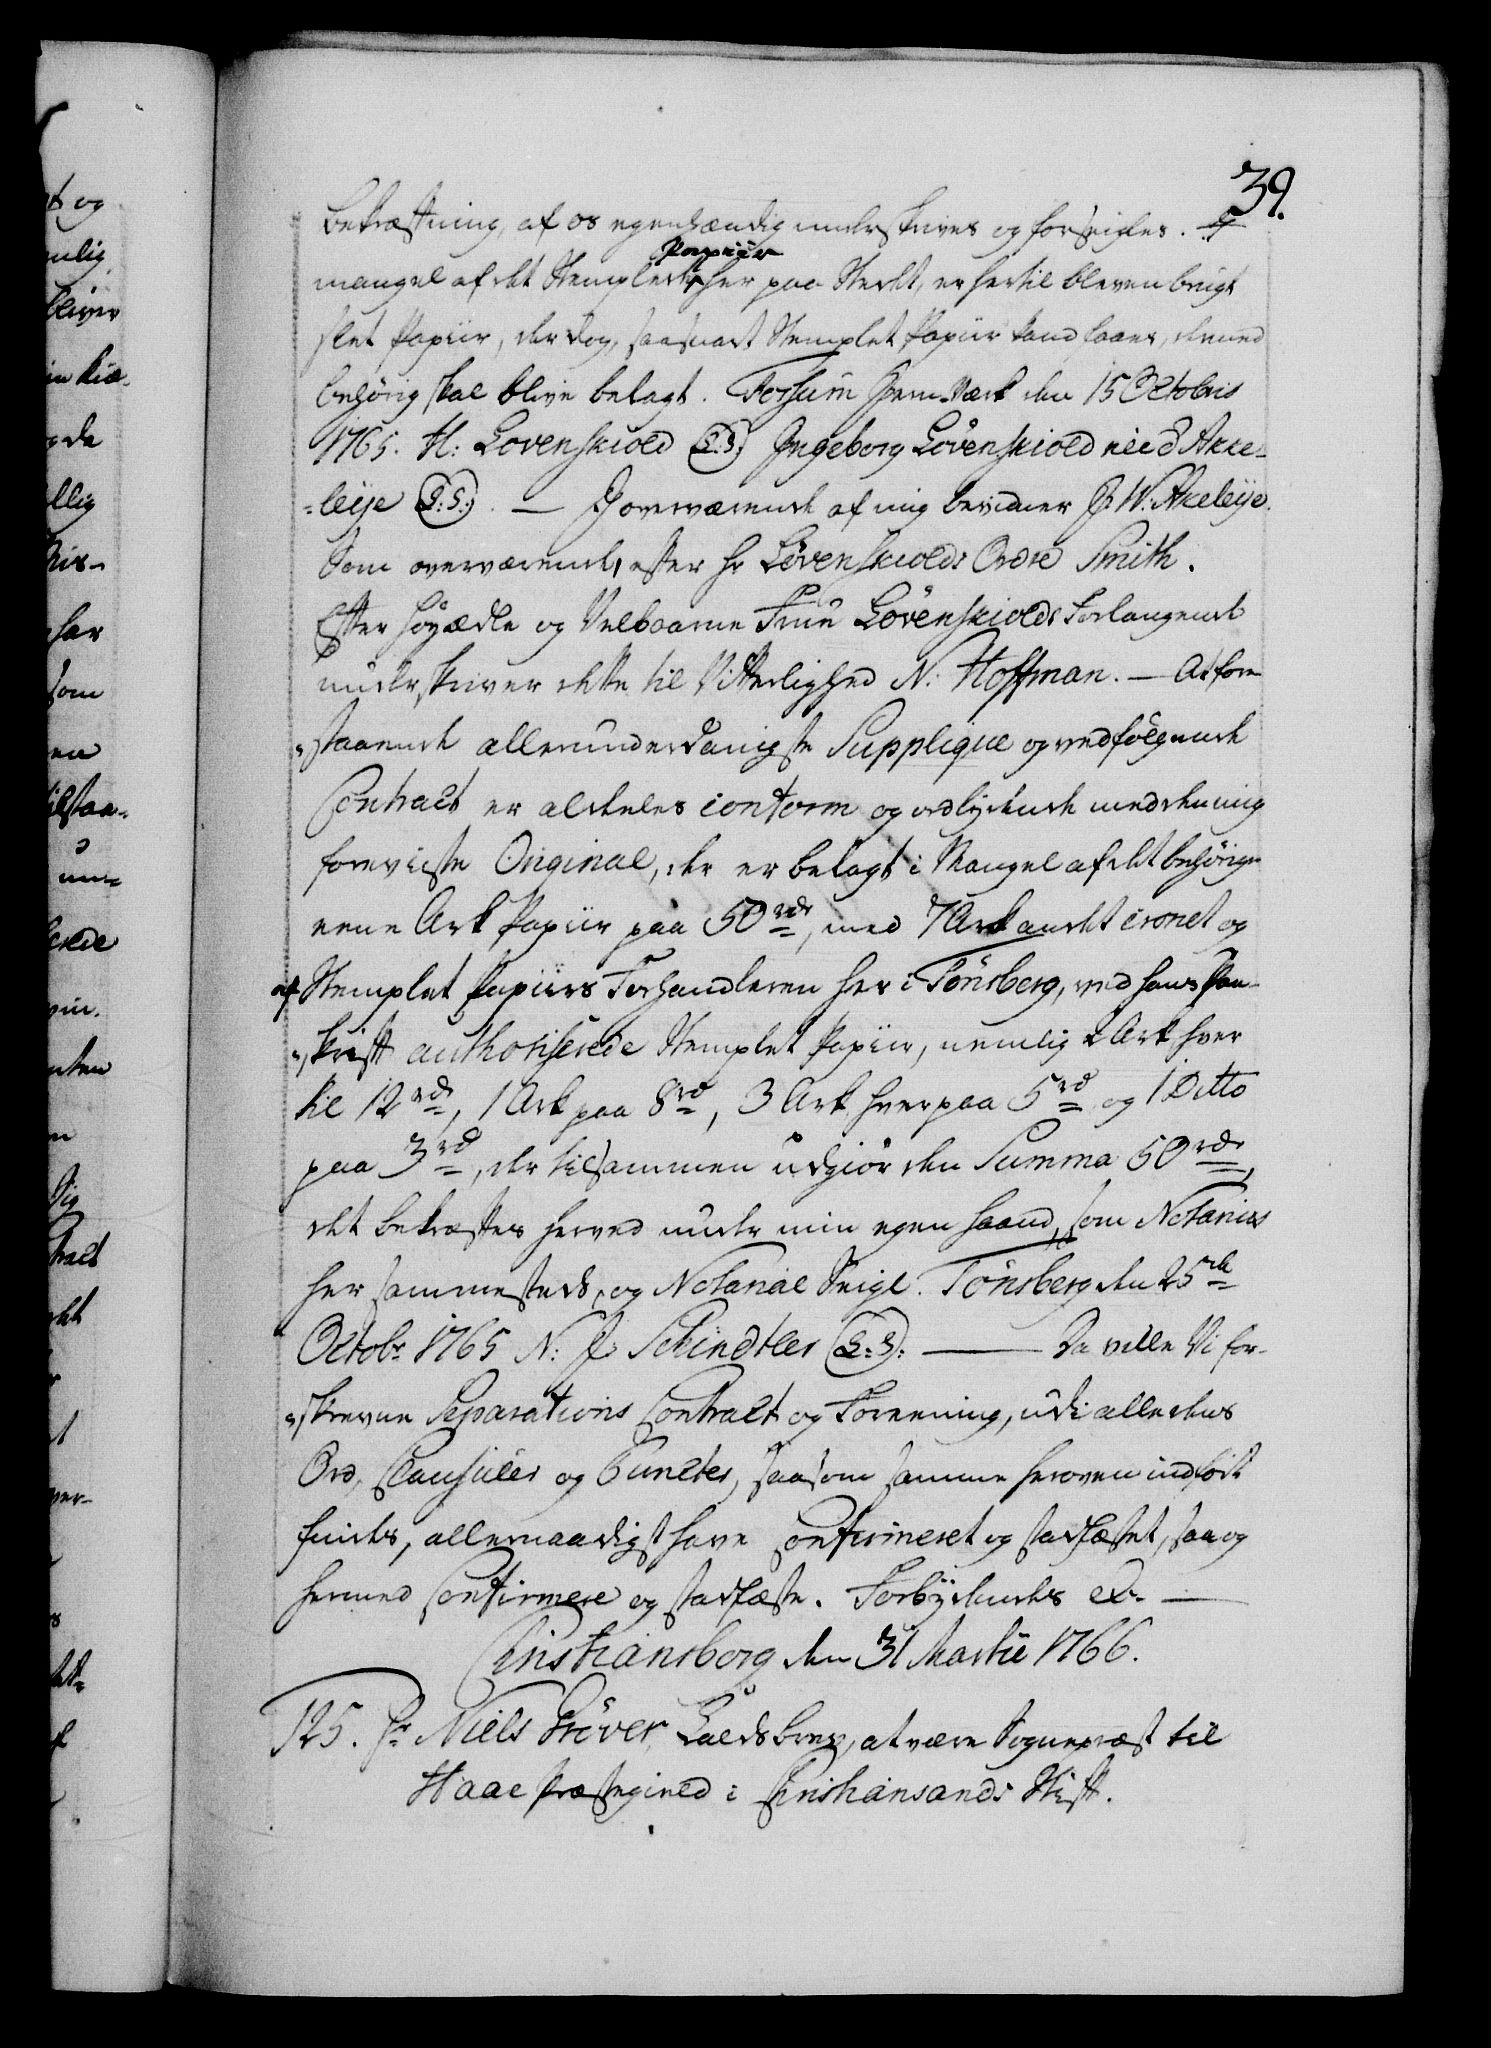 39.
bekræftning, af os egenhændig underskrives og forseigles. I
mangel af det Stemplede Papiir her paa Stedet, er hertil bleven brugt
slet Papiir, der dog, saasnart Stemplet Papiir kand faaes, dermed
behörig skal blive belagt. Fossum Jern-Værk den 15 Octobris
1765. H: Lövenskiold (L:S:) Ingeborg Lövenskiold née d'Akke-
-leÿe (L:S:). — I overværende af mig bevidner J. W: Akeleÿe.
Som overværende, efter Hr Lövenskiolds Ordre Smith.
Efter Höyædle og Velbaarne Frue Lövenskiolds Forlangende
underskriver dette til Vitterlighed N: Hoffman. — At for-
-staaende allerunderdanigste Supplique og vedfölgende
Contract er aldeeles conform og ordlydende med den mig
foreviiste Original, der er belagt i Mangel af det behörige
eene Ark Papiir paa 50 rdr, med 7 Ark andet cronet og
af Stemplet Papiirs Forhandleren her i Tönsberg, ved hans Paa-
-skrift authoriserede Stemplet Papiir, nemlig 2 Ark hver
til 12 rdr, 1 Ark paa 8 rd, 3 Ark hver paa 5 rd og 1 Ditto
paa 3 rd, der tilsammen udgiör den Summa 50 rdr,
det bekræftes herved under min egen Haand, som Notarius
her sammesteds, og Notarial Seigl. Tönsberg den 25de
Octobr 1765 N: J. Schindtler (L:S:). — Da ville Vi for-
-skrevne Separations Contract og Foreening, udi alle dens
Ord, Clausuler og Puncter, saasom samme heroven indfört
findes, allernaadigst have Confirmeret og stadfæstet, saa og
hermed Confirmere og stadfæste. Forbydendes &c. —
Christiansborg den 31 Martii 1766.
125. Hr Niels Pröver, Kaldsbrev, at være Sognepræst til
Haae Præstegield i Christiansands Stift.